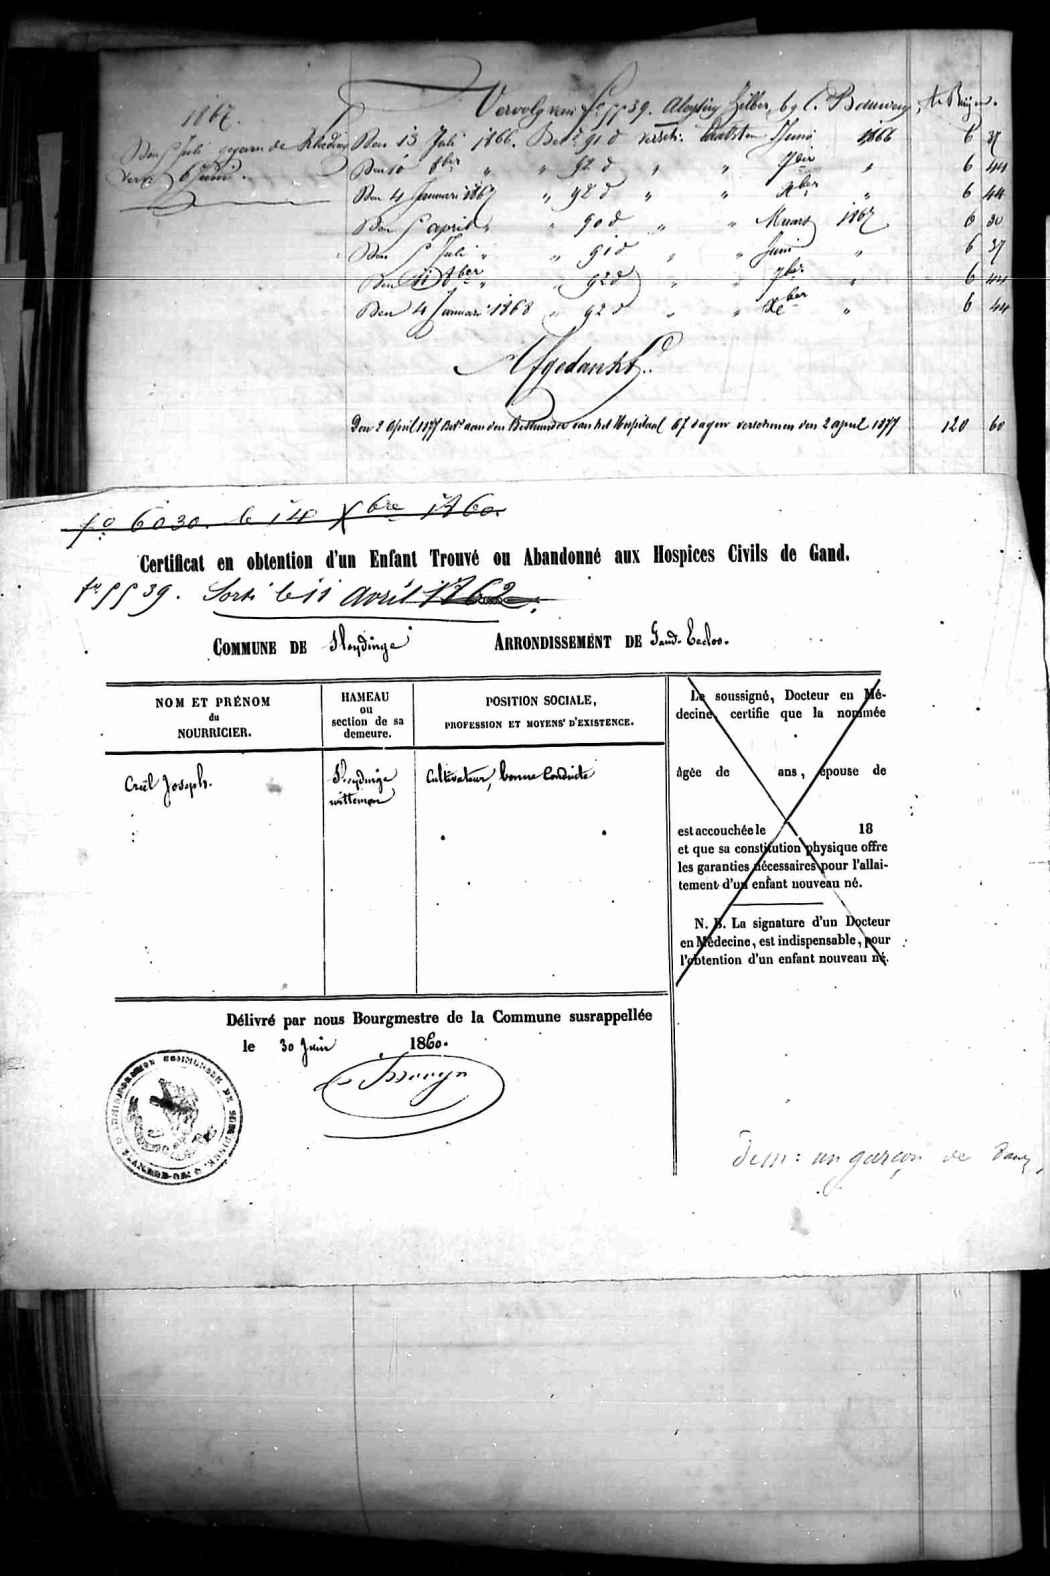 1867.
Vervolg van fo 5539. Aloysius Hilber, by C. Bauwens, te
Den 5 Juli gegeven de
verv. 6 Juni.
Den 13 Juli 1866. Bet. 91 d versch. laatsten Juni 1866 6 37
Den 10 8ber " " 92 d " " 7ber " 6 44
Den 4 Januari 1867 " 92 d " " Xber " 6 44
Den 5 april " " 90 d " " Maart 1867 6 30
Den 5 Juli " " 91 d " " Juni " 6 37
Den 11 8ber " " 92 d " " 7ber " 6 44
Den 4 Januari 1868 " 92 d " " Xber " 6 44
Afgedankt
Den 2 April 1877 Bet. aan den Bestuurder van het Hospitaal 67 dagen verschenen den 2 april 1877 120 60
fo 6030. le 14 Xbre 1860.
Certificat en obtention d'un Enfant Trouvé ou Abandonné aux Hospices Civils de Gand.
fo 5539. Sorti le 11 avril 1862.
COMMUNE DE Sleydinge ARRONDISSEMENT DE Gand-Eecloo.
NOM ET PRÉNOM
du
NOURRICIER.
HAMEAU
ou
section de sa
demeure.
POSITION SOCIALE,
PROFESSION ET MOYENS D'EXISTENCE.
Criel Joseph.
Sleydinge
wittemoer
Cultivateur, bonne Conduite
Le soussigné, Docteur en Mé-
decine, certifie que la nommée
âgée de ans, épouse de
est accouchée le 18
et que sa constitution physique offre
les garanties nécessaires pour l'allai-
tement d'un enfant nouveau né.
N. B. La signature d'un Docteur
en Médecine, est indispensable, pour
l'obtention d'un enfant nouveau né.
Délivré par nous Bourgmestre de la Commune susrappellée
le 30 Juin 1860.
Dem: un garçon de